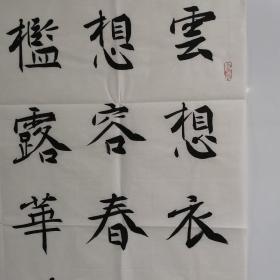 雲想衣
想容春
檻露華